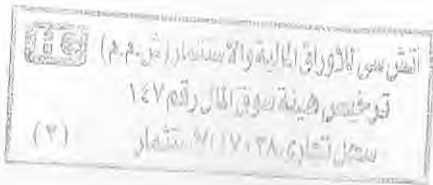 اتش سى للأوراق المالية والاستثمار (ش.م.م)
ترخيص هيئة سوق المال رقم ١٤٧
سجل تجارى استثمار
(٢)